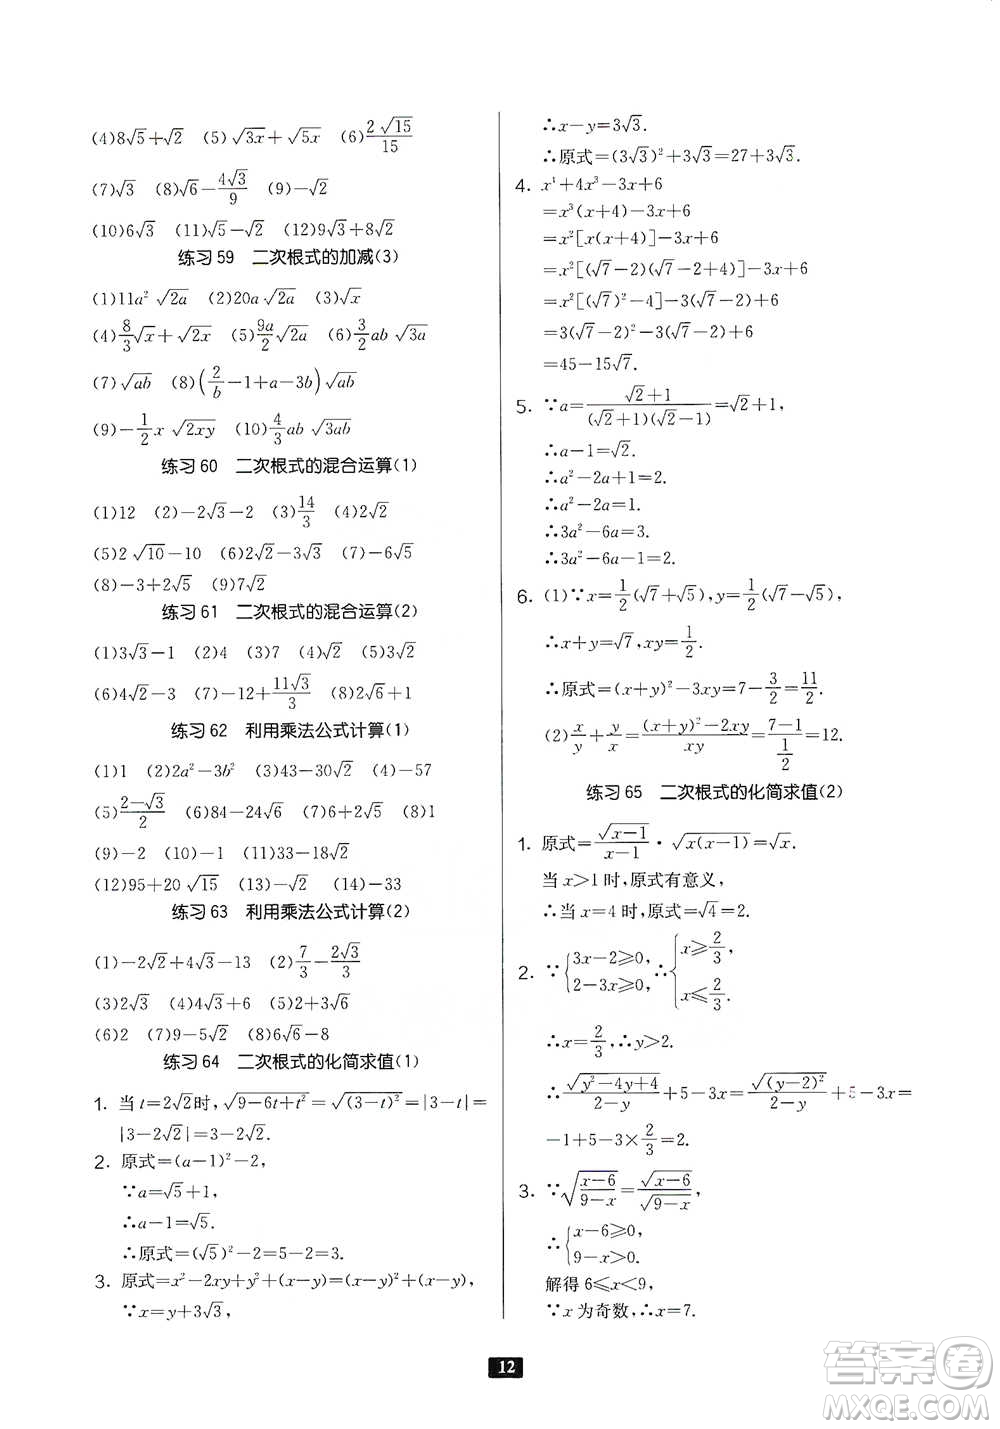 (4)8√5+√2 (5)√3x+√5x (6)2√15/15
(7)√3 (8)√6-4√3/9 (9)-√2
(10)6√3 (11)√5-√2 (12)9√3+8√2
练习 59 二次根式的加减(3)
(1)11a²√2a (2)20a√2a (3)√x
(4)8/3√x+√2x (5)9a/2√2a (6)3/2ab√3a
(7)√ab (8)(2/b-1+a-3b)√ab
(9)-1/2x√2xy (10)4/3ab√3ab
练习 60 二次根式的混合运算(1)
(1)12 (2)-2√3-2 (3)14/3 (4)2√2
(5)2√10-10 (6)2√2-3√3 (7)-6√5
(8)-3+2√5 (9)7√2
练习 61 二次根式的混合运算(2)
(1)3√3-1 (2)4 (3)7 (4)√2 (5)3√3
(6)4√2-3 (7)-12+11√3/3 (8)2√6+1
练习 62 利用乘法公式计算(1)
(1)1 (2)2a²-3b² (3)43-30√2 (4)-57
(5)2-√3/2 (6)9-4√2 (7)24√6 (8)1
(9)-2 (10)-1 (11)33-18√2
(12)95+20√15 (13)-√2 (14)-1
练习 63 利用乘法公式计算(2)
(1)-2√2+4√3-13 (2)7/3-2√3/3
(3)2√3 (4)4√3+6 (5)2+3√6
(6)2 (7)9-5√2 (8)6√6-8
练习 64 二次根式的化简求值(1)
1. 当 t=2√2时,√(9-6t+t²)=√((3-t)²)=|3-t|=
|3-2√2|=3-2√2.
2. 原式=(a-1)²-2,
∵a=√5+1,
∴a-1=√5.
∴原式=(√5)²-2=5-2=3.
3. 原式=x²-2xy+y²+(x-y)=(x-y)²+(x-y),
∵x=y+3√3,
∴x-y=3√3.
∴原式=(3√3)²+3√3=27+3√3.
4. x⁴+4x³-3x+6
=x³(x+4)-3x+6
=x²[x(x+4)]-3x+6
=x²[(√7-2)(√7-2+4)]-3x+6
=x²[(√7)²-4]-3(√7-2)+6
=3(√7-2)²-3(√7-2)+6
=45-15√7.
5. ∵a=(√2+1)/((√2+1)(√2-1))=√2+1,
∴a-1=√2.
∴a²-2a+1=2.
∴a²-2a=1.
∴3a²-6a=3.
∴3a²-6a-1=2.
6. (1)∵x=1/2(√7+√5),y=1/2(√7-√5),
∴x+y=√7,xy=1/2.
∴原式=(x+y)²-3xy=7-3/2=11/2.
(2)x/y+y/x=((x+y)²-2xy)/xy=(7-1)/(1/2)=12.
练习 65 二次根式的化简求值(2)
1. 原式=√(x-1)/(x-1)·√(x(x-1))=√x.
当 x>1 时,原式有意义,
∴当 x=4 时,原式=√4=2.
2. ∵{3x-2≥0, 2-3x≥0, ∴{x≥2/3, x≤2/3.
∴x=2/3,∴y>2.
∴√(y²-4y+4)/(2-y)+5-3x=√((y-2)²)/(2-y)+5-3x=
-1+5-3×2/3=2.
3. ∵√((x-6)/(9-x))=√(x-6)/√(9-x),
∴{x-6≥0, 9-x>0.
解得 6≤x<9,
∵x 为奇数,∴x=7.
12
答案圈
MXQE.COM